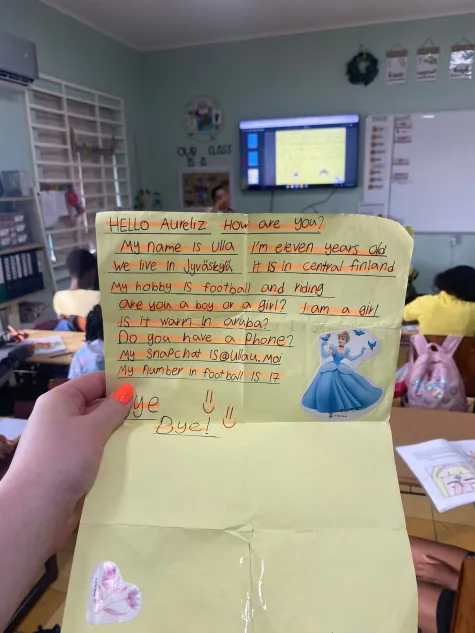 OUR CLASS
IS A
HELLO Aureliz How are you?
My name is ulla I'm eleven years old
We live in Jyväskylä It is in central finland
My hobby is football and riding
Are you a boy or a girl? I am a girl
Is it warm in aruba?
Do you have a phone?
My snapchat is@ullau.Moi
My number in football is 17
ye
Bye!